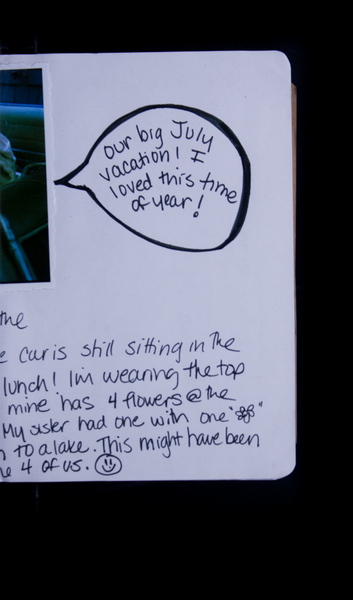 our big July
vacation! I
loved this time
of year!
the
car is still sitting in the
lunch! I'm wearing the top
mine has 4 flowers @ the
My sister had one with one "
"
to a lake. This might have been
4 of us.